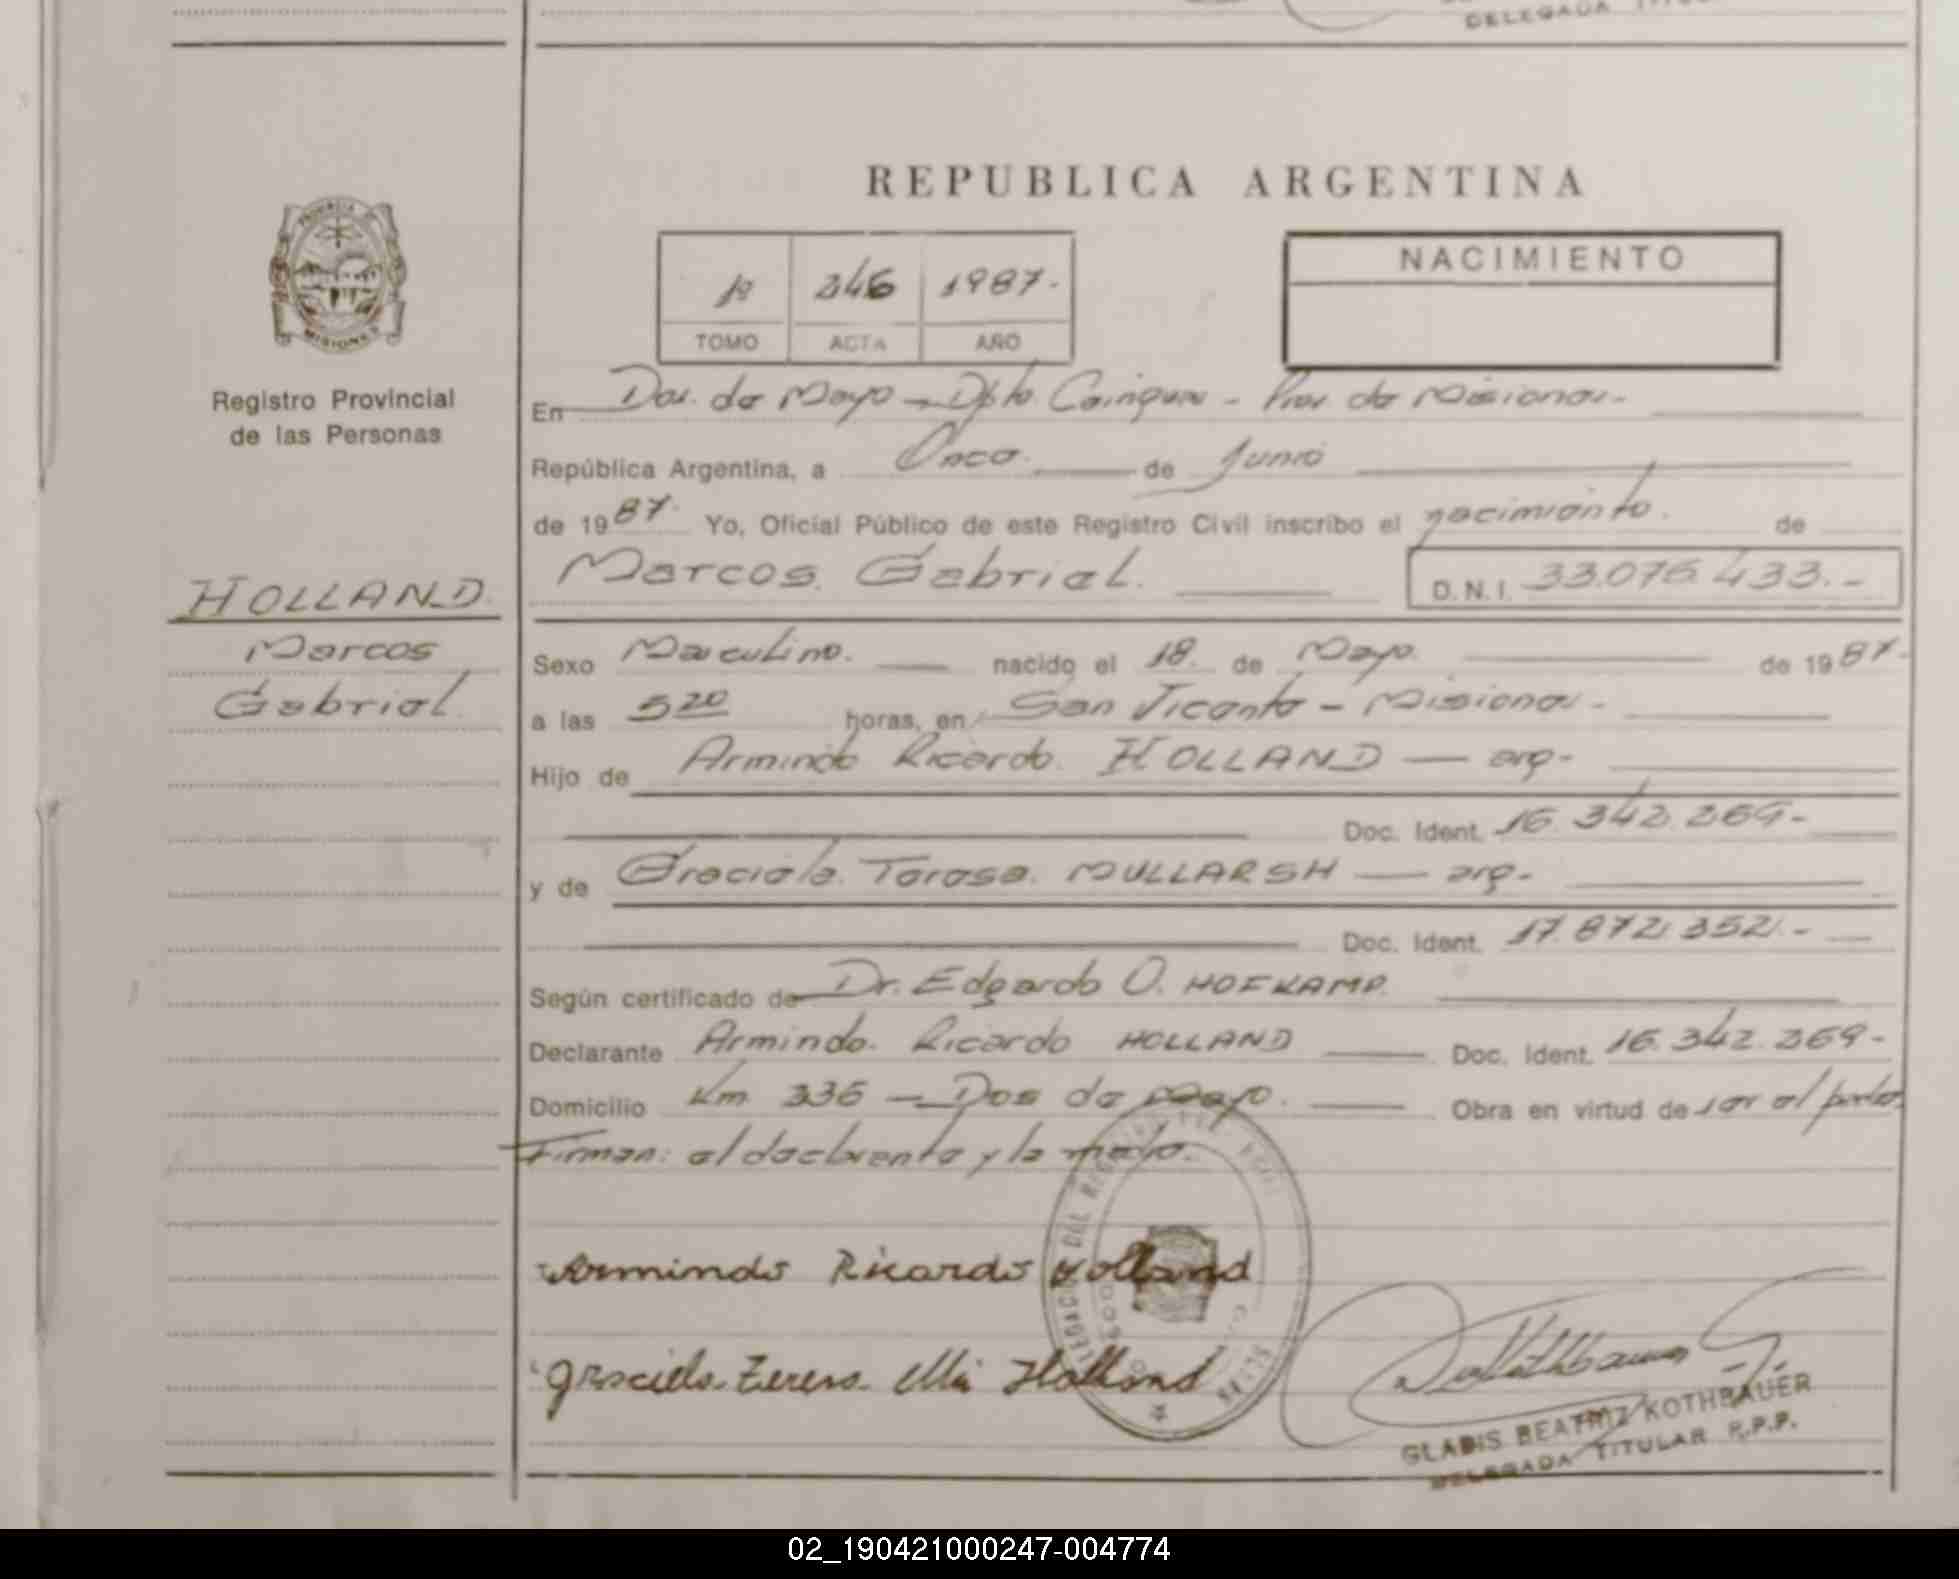 DELEGADA
REPUBLICA ARGENTINA
PROVINCIA DE
MISIONES
Registro Provincial
de las Personas
1º 246 1987.-
TOMO ACTA AÑO
NACIMIENTO
En Dos de Mayo - Dpto. Cainguas - Prov de Misiones.-
República Argentina, a Once. de Junio
de 1987. Yo, Oficial Público de este Registro Civil inscribo el nacimiento. de
Marcos Gabriel. D.N.I. 33.076.433.-
HOLLAND.
Marcos
Gabriel.
Sexo Masculino. nacido el 18. de Mayo. de 1987.-
a las 5 20 horas, en San Vicente - Misiones.-
Hijo de Armindo Ricardo. HOLLAND — arg-
Doc. Ident. 16.342.269.-
y de Graciela. Teresa. MULLARSH — arg.-
Doc. Ident. 17.872.352.-
Según certificado de Dr. Edgardo O. HOFKAMP.
Declarante Armindo. Ricardo HOLLAND Doc. Ident. 16.342.269-
Domicilio Km 336 - Dos de Mayo. Obra en virtud de ser el padre.
Firman: el declarante y la madre.
Armindo Ricardo Holland
Graciela Teresa Holland
GLADIS BEATRIZ KOTHBAUER
DELEGADA TITULAR R.P.P.
02_190421000247-004774